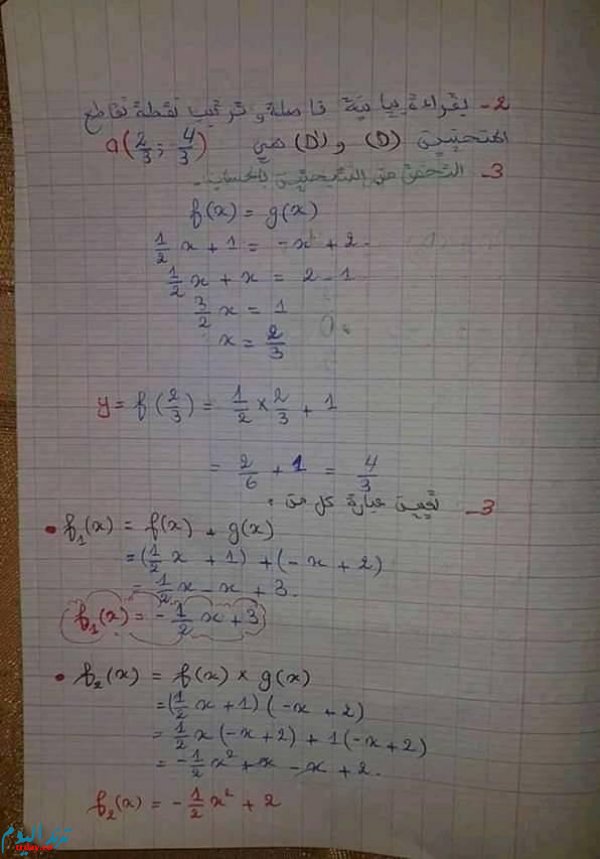 2- بقراءة بيانية فاصلة و ترتيب نقطة تقاطع
المنحنيين (D) و (D') هي a(2/3 ; 4/3)
3- التحقق من النتيجتين بالحساب.
f(x) = g(x)
1/2 x + 1 = -x + 2.
1/2 x + x = 2 - 1
3/2 x = 1
x = 2/3
y = f(2/3) = 1/2 × 2/3 + 1
= 2/6 + 1 = 4/3
3- تعيين عبارة كل من :
• f₁(x) = f(x) + g(x)
= (1/2 x + 1) + (-x + 2)
= 1/2 x - x + 3.
f₁(x) = -1/2 x + 3
• f₂(x) = f(x) × g(x)
= (1/2 x + 1) (-x + 2)
= 1/2 x (-x + 2) + 1(-x + 2)
= -1/2 x² + x - x + 2.
f₂(x) = -1/2 x² + 2
ترند اليوم